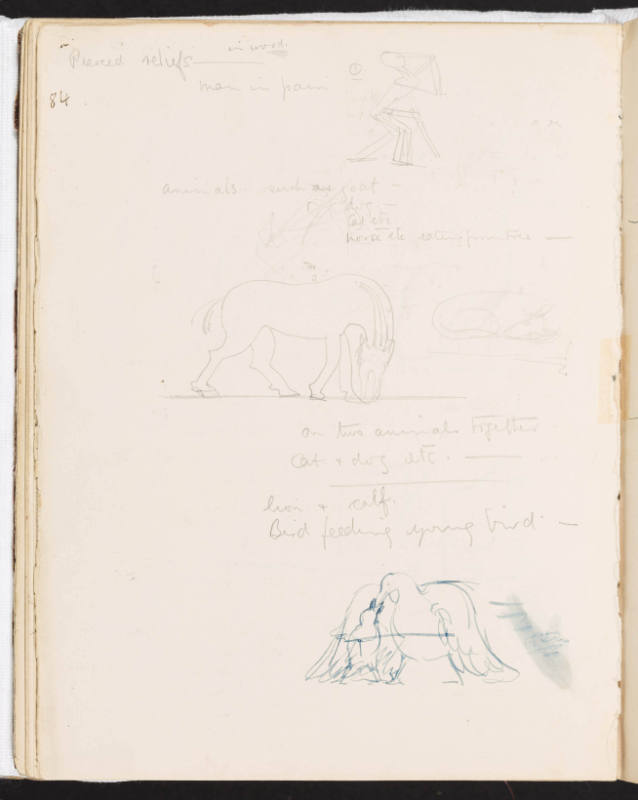 in wood.
Pierced reliefs
man in pain
84
①
animals such as goat
dog
cat etc
horse etc eating from tree
or two animals together
cat + dog etc.
lion + calf.
Bird feeding young bird.